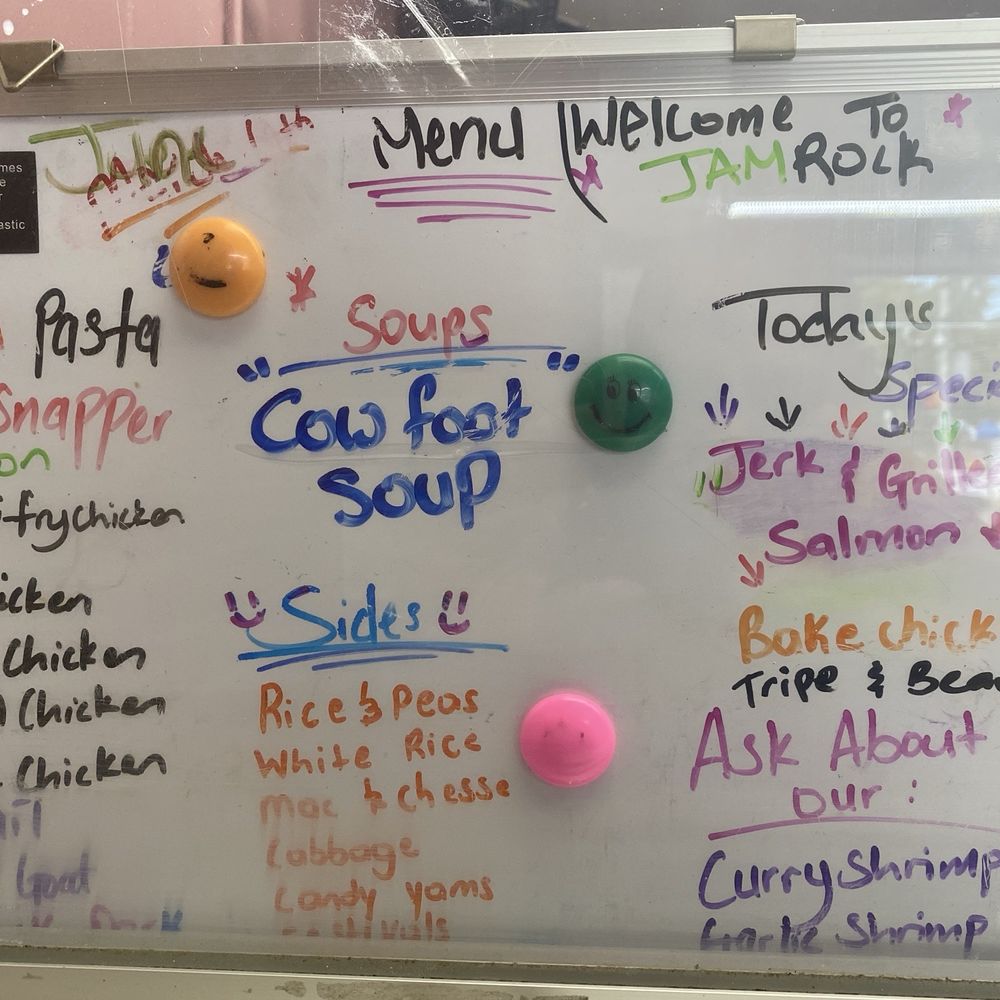 June 1th
Menu
Welcome To
JAMROCK
mes
e
r
astic
Pasta
Snapper
on
frychicken
icken
Chicken
Chicken
Chicken
Goat
Soups
"Cow foot"
Soup
Sides
Rice & Peas
White Rice
mac & chesse
Cabbage
Candy yams
Today's
Speci
"Jerk & Grille
Salmon
Bake chick
Tripe & Bea
Ask About
our:
Curry Shrimp
Garlic Shrimp